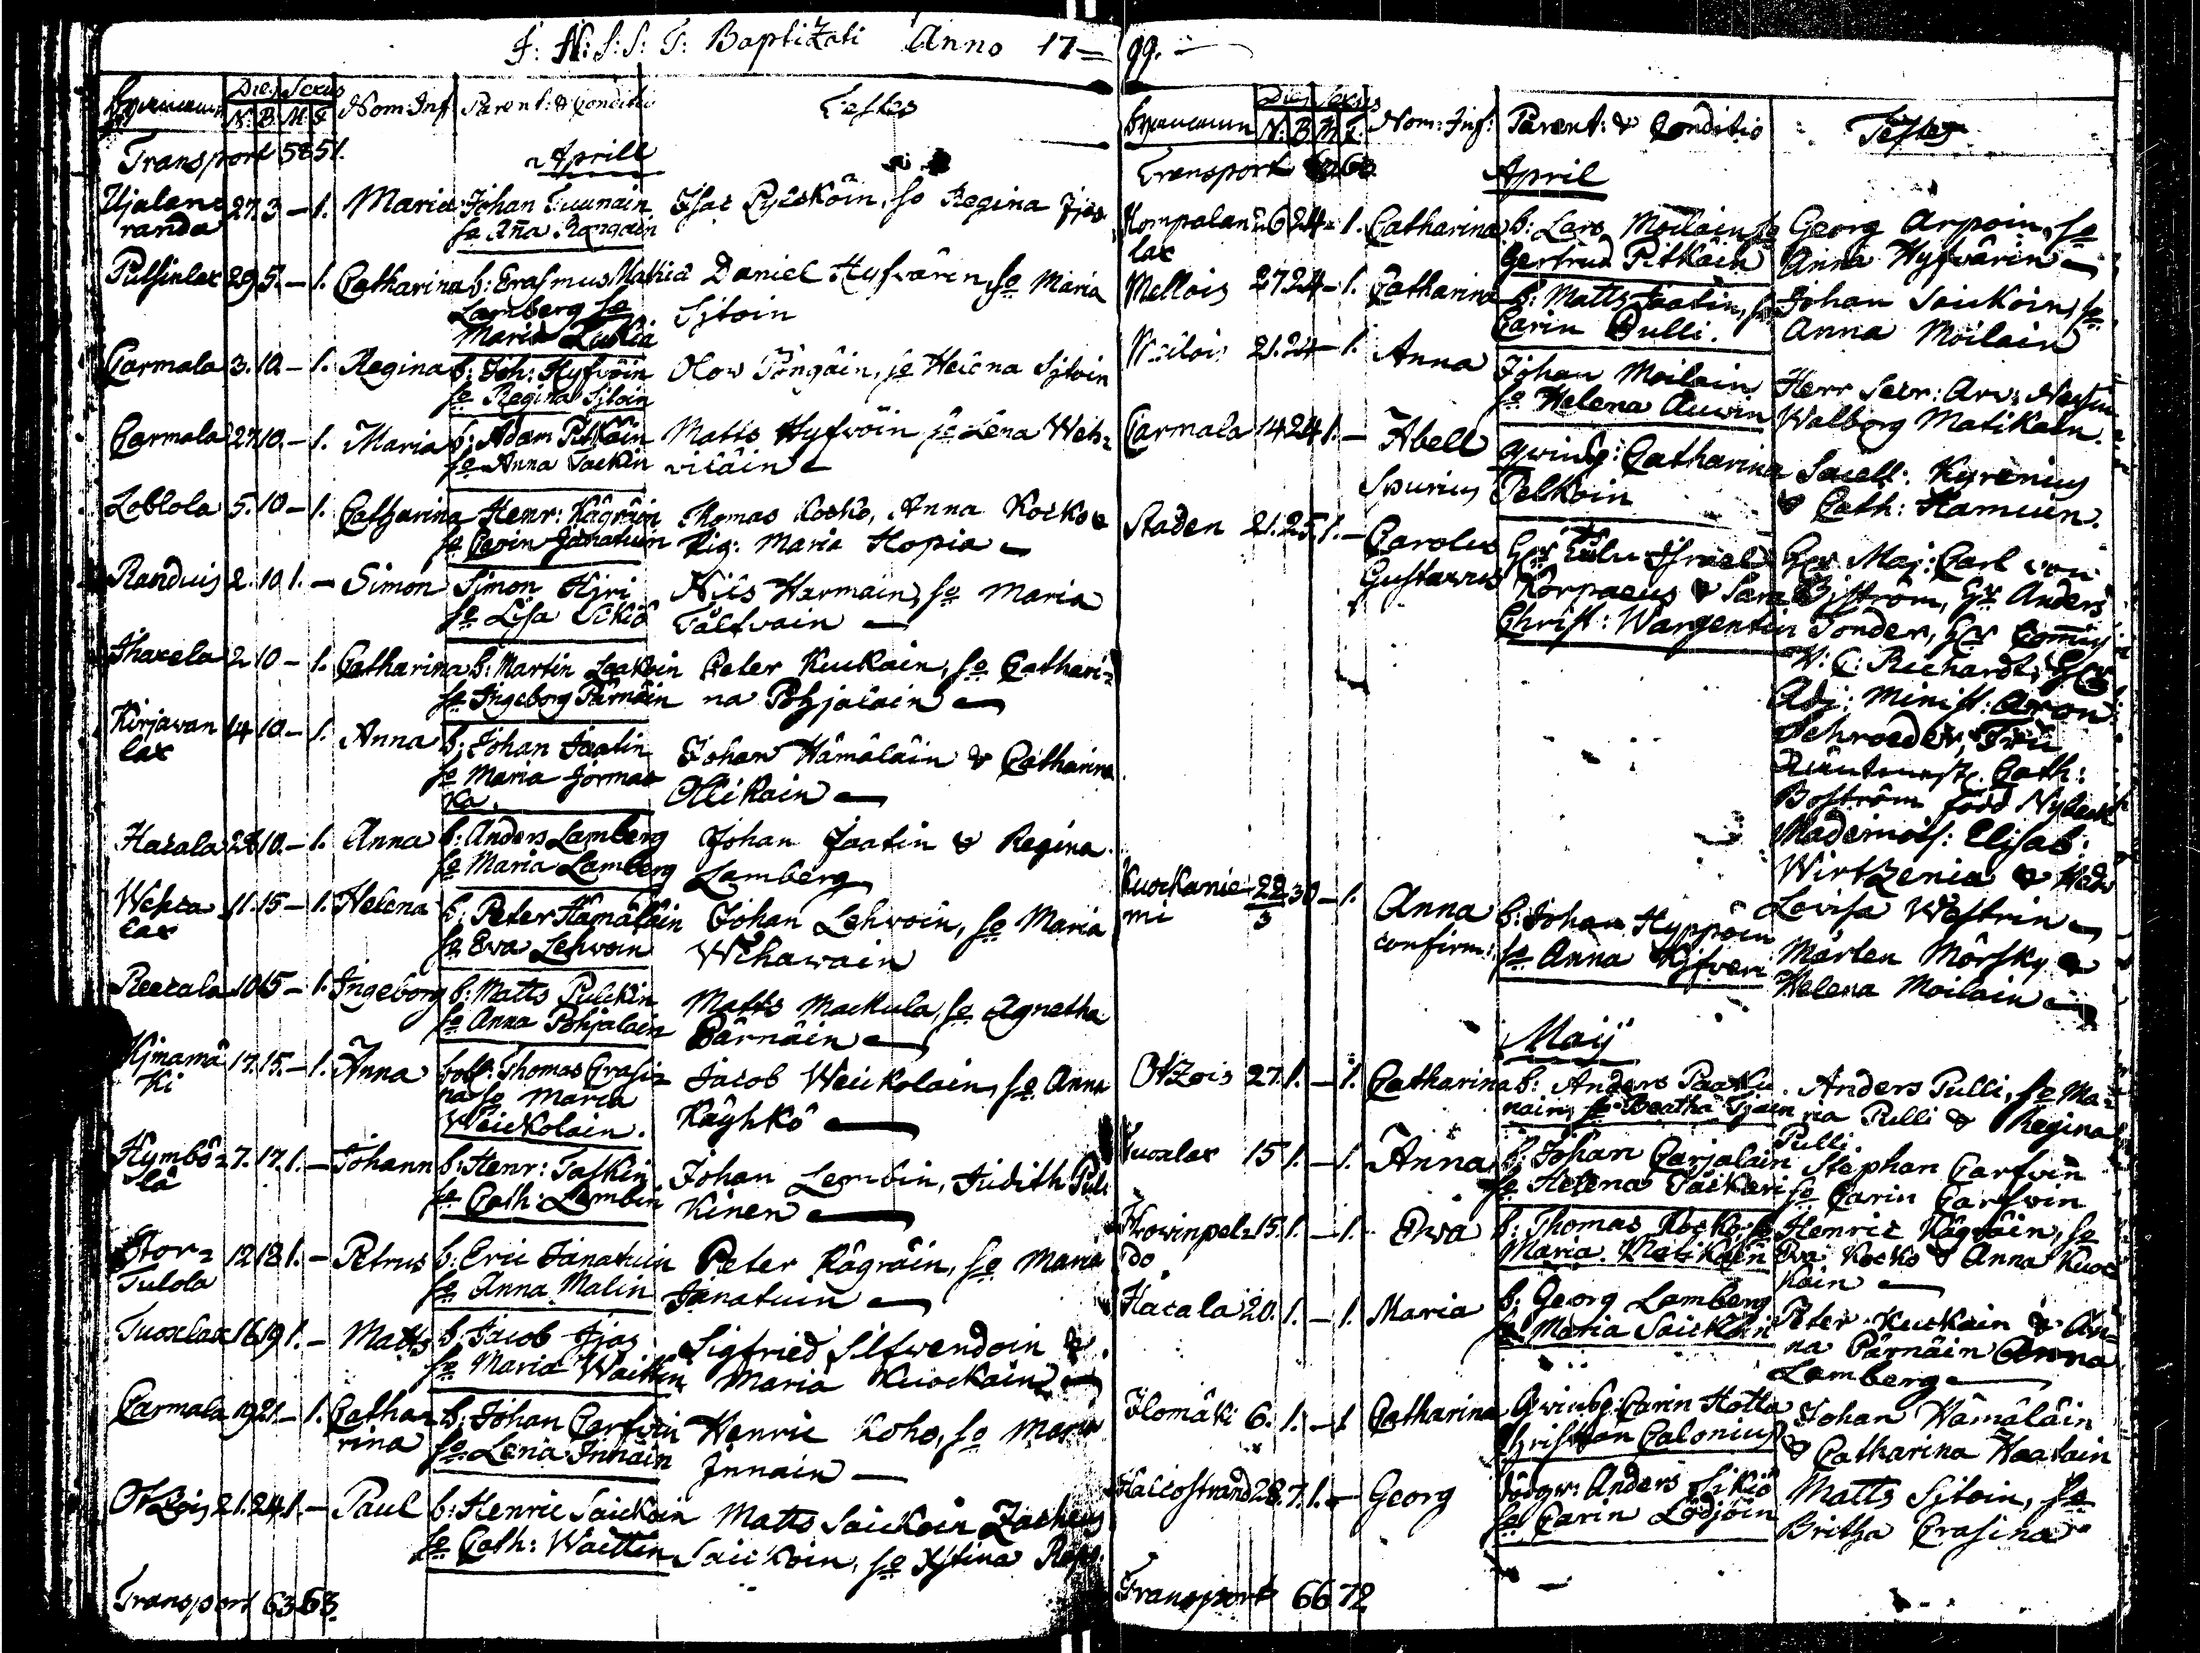 J: N: S: S: T: Baptizati Anno 17 99.
Dies Sexus
N: B. M. F Nom: Inf Parent: & Conditio Testes
Transport 58 51.
Aprill
Ujalan randa 27. 3 – 1. Maria Johan Tuunain
sa Aña Rongain
Isac Pylcköin, sa Regina
Putsinlax 29 5. – 1. Catharina b: Erasmus Mathia
Lamberg sa
Maria Luckia
Daniel Hyfvären, sa Maria
Sitoin
Carmala 3. 10. – 1. Regina b: Joh: Hyfvöin
sa Regina Sitoin
Olow Pöngäin, sa Helena Sitoin
Carmala 27 10. – 1. Maria b: Adam Pitkäin
sa Anna Tackin
Matts Hyfvöin sa Lena Weh-
viläin
Leblola 5. 10 – 1. Catharina Henr: Kägräin
sa Carin Janatuin
Thomas Kocko, Anna Kocko &
Pig: Maria Hopia
Randuis 2. 10 1. – Simon Simon Hiri
sa Lisa Sikiö
Nils Harmain, sa Maria
Tälfvain
Ihaxela 2 10 – 1. Catharina b: Martin Laakoin
sa Ingeborg Pärnäin
Peter Kuckain, sa Cathari-
na Pohjalain
Kirjavan lax 14 10. – 1. Anna b: Johan Jaatin
sa Maria Jormac
ka.
Johan Hämäläin & Catharina
Ollikain
Hacala 28 10. – 1. Anna b: Anders Lamberg
sa Maria Lamberg
Johan Jaatin & Regina
Lamberg
Wehca lax 11. 15 – 1. Helena b: Peter Hämäläin
sa Eva Lehvoin
Johan Lehvoin, sa Maria
Wihavain
Reecala 10 15 – 1. Ingeborg b: Matts Pulckin
sa Anna Pohjalain
Matts Mackula, sa Agnetha
Pärnäin
Kimamä ki 17. 15. – 1. Anna Thomas Crasi-
na sa Maria
Weickolain.
Jacob Weickolain, sa Anna
Käyhkö
Hymbö- lä 7. 17. 1. – Johann b: Henr: Taskin
sa Cath: Lembin
Johan Lembin, Judith Pul
kinen
Stor- Tulola 12 18 1. – Petrus b: Eric Janatuin
sa Anna Malin
Peter Kägräin, sa Maria
Janatuin
Tuoxlax 16 19 1. – Matts b: Jacob Ijas
sa Maria Waitkin
Sigfried Silfvendoin &
Maria Kuockain
Carmala 19 21. – 1. Catha- rina b: Johan Carfvin
sa Lena Innäin
Henric Koho, sa Maria
Innain
Otzois 21. 24 1. – Paul b: Henric Saickoin
sa Cath: Waitten
Matts Saickoin Zacheus
Saickoin, sa Xstina
Transport 63 63.
Dies Sexus
N: B M F. Nom: Inf: Parent: & Conditio Testes
Transport 63 63
April
Kompalan lax 26 24 – 1. Catharina b: Lars Moilain sa
Gertrud Pitkäin
Georg Arpoin, sa
Anna Hyfvärin
Mellois 27 24 – 1. Catharina b: Matts Jaatin, sa
Carin Pulli.
Johan Saickoin, sa
Anna Moilain
21. 24 – 1. Anna Johan Moilain
sa Helena Auwin
Herr Secr: Arv:
Walborg Matikain.
Carmala 14 24 1. – Abell Spurius Qvinsp: Catharina
Pelkoin
Sacell: Kyrenius
& Cath: Hamuin.
Staden 21. 25. 1. – Carolus Gustavus Hr Israel
Korpaeus & Sara
Christ: Wargentin
Hr Maj: Carl von
Biström, Hr Anders
Sonder, Hr Commis
W: C: Richardt, Hr
Adj: Minist: Aron
Schroeder, Fru
Cath:
Boström född Nybeck
Mademois: Elisab:
Wirtzenia &
Lovisa Westrin
Kuockanie mi 22/3 30 – 1. Anna confirm: b: Johan Hyppöin
sa Anna Kifveri
Märten Mörsky &
Helena Moilain
Maij
Otzois 27. 1. – 1. Catharina b: Anders Paaku
nain, sa Beatha
Anders Pulli, sa Ma-
ria Pulli & Regina
Pulli
Tuoxlax 15 1. – 1. Anna b: Johan Carjalain
sa Helena Täckäri
Stephan Carfvin
sa Carin Carfvin
Kovinpel- do 15. 1. – 1. Eva b: Thomas Kocko, sa
Maria Matikain
Henric Kägräin, sa
Eva Kocko & Anna Kuoc
kain
Hacala 20. 1. – 1. Maria b: Georg Lamberg
sa Maria Saickoin
Peter Kuckain & An-
na Pärnäin Anna
Lamberg
Ilomäki 6. 1. – 1 Catharina Qvinsp: Carin Hotta
Christian Calonius
Johan Hämäläin
& Catharina Haatain
Hallostrand 28. 7. 1. – Georg Anders Sikiö
sa Carin Lödjöin
Matts Sitoin, sa
Britha Crasina
Transport 66 72